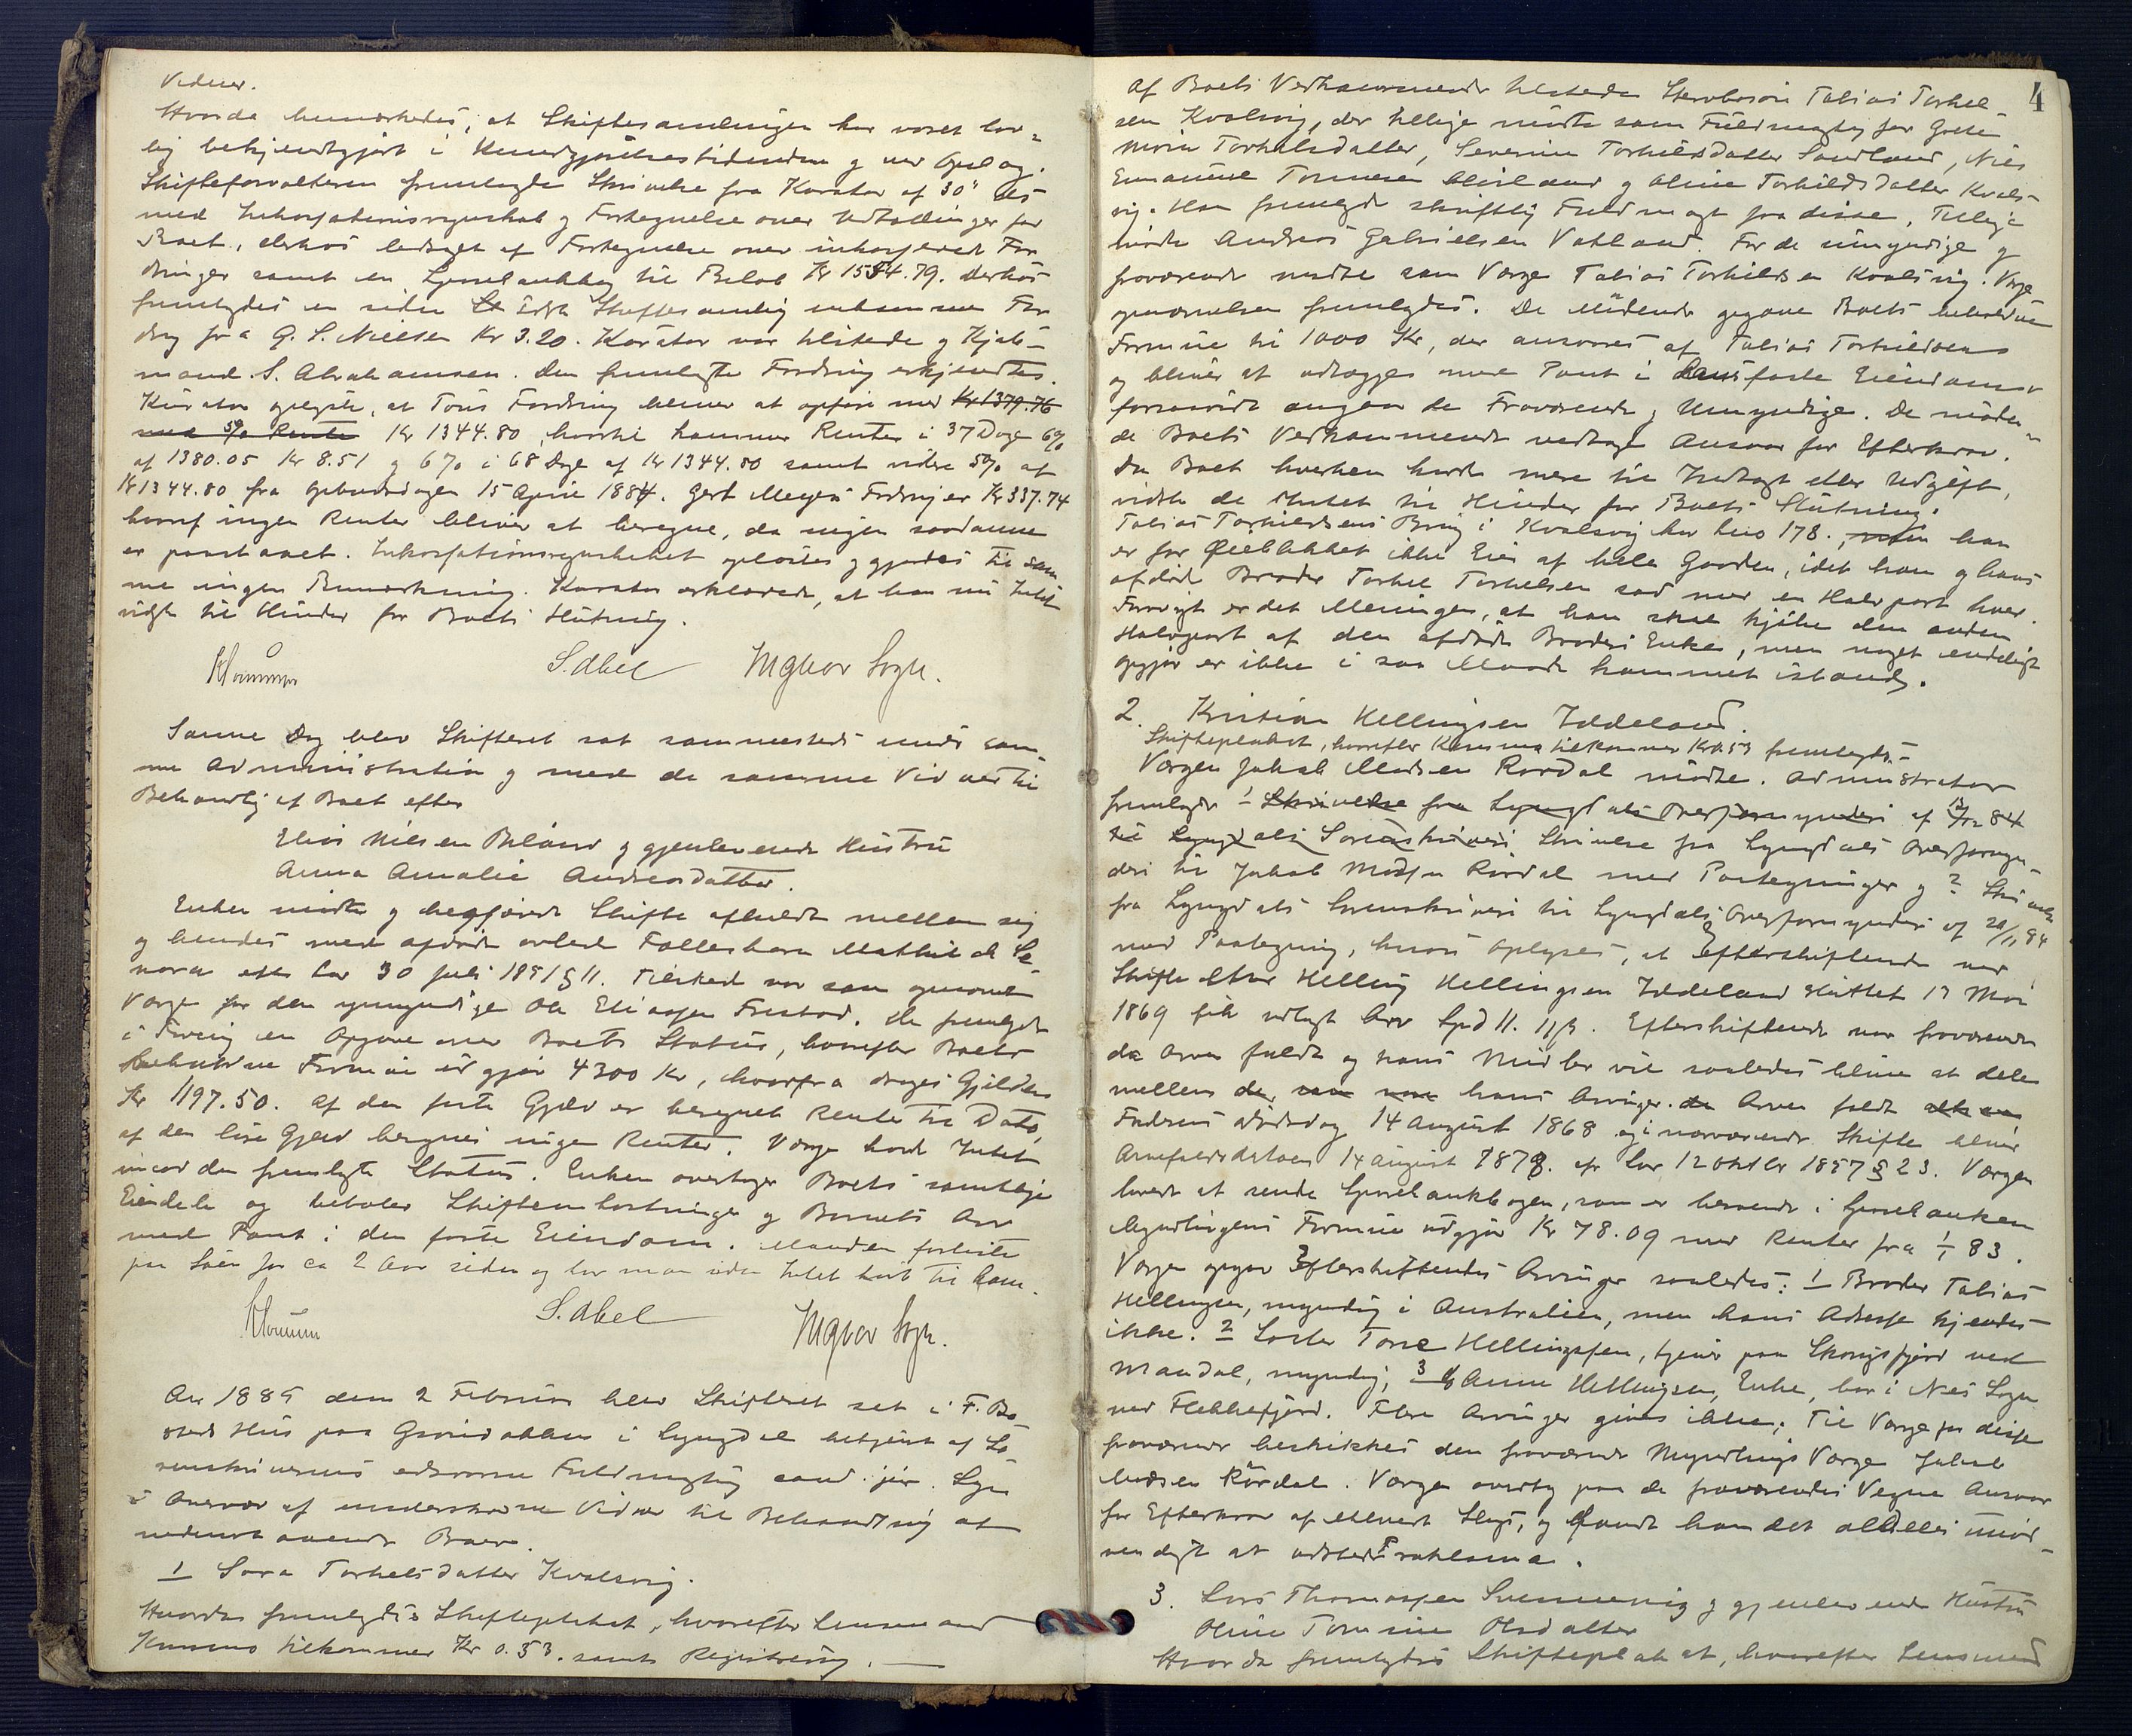 Vidner.
Hvorda bemærkedes, at Skiftesamlingen har været lov=
lig bekjendtgjort i Kundgjørelsestidenden g ved Opslag.
Skifteforvalteren fremlagde Skrivelse fra Kurator af 30' ds
med Inkassationsregnskab g Fortegnelse over Udtællinger for
Boet, derhos ledsaget af Fortegnelse over inkasserede For
dringer samt en til Beløb Kr 1554.79. Derhos
fremlagdes en siden sidste Skiftesamling indkommen For
dring fra G. S. Nielsen Kr 3.20. Kurator var tilstede g Kjøb-
mand S. Abrahamsen. Den fremlagte Fordring erkjendtes.
Kurator oplyste, at Tous Fordring bliver at opføre med Kr 1379.76
med 5% Renter Kr 1344.80, hvortil kommer Renter i 37 Dage 6%
af 1380.05 Kr 8.51 g 6% i 68 Dage af Kr 1344.80 samt videre 5% af
Kr 1344.80 fra Opbudsdagen 15 April 1884. Gert Meyers Fordring er Kr 337.74
hvoraf ingen Renter bliver at beregne, da ingen saadanne
er paastaaet. Inkassationsregnskabet oplæstes g gjordes til sam
me ingen Bemærkning. Kurator erklærede, at han nu Intet
vidste til Hinder for Boets Slutning.
S. Abel Ingvar Sogn.
Samme Dag blev Skifteret sat sammesteds under sam
me Administration g med de samme Vidner til
Behandling af Boet efter
Elias Nielsen Biland g gjenlevende Hustru
Anna Amalie Andreasdatter.
Enken mødte g begjærede Skifte afholdt mellem sig
g hendes med afdøde avlede Fællesbarn Mathilde Le-
nora efter Lov 30 Juli 1851 § 11. Tilstede var som opnævnt
Værge for den umyndige Ole Eliassen Frestad. De fremlagde
i Forening en Opgave over Boets Status, hvorefter Boets
beholdne Formue udgjør 4300 Kr, hvorfra drages Gjælden
Kr 1197.50. Af den faste Gjæld er beregnet Renter til Dato,
af den løse Gjæld beregnes ingen Renter. Værge havde Intet
imod den fremlagte Status. Enken overtager Boets samtlige
Eiendele og betaler Skifteomkostninger g Barnets Arv
med Pant i den faste Eiendom. Manden forliste
paa Søen for ca 2 Aar siden og har man siden Intet hørt til ham.
S. Abel Ingvar Sogn.
Ar 1885 den 2 Februar blev Skifteret sat i F. Bø
steds Hus paa Grøndokken i Lyngdal betjent af So
renskriverens edsvorne Fuldmægtig cand. jur. Lyn
i Overvær af underskrevne Vidner til Behandling af
nedenstaaende Boer.
1 Sara Torkelsdatter Kvalsvig.
Hvorda fremlagdes Skifteplakat, hvorefter Lensmand
Kummo tilkommer Kr 0.53. samt Registrering. —
4
Af Boets Vedkommende tilstede Stervbosøn Tobias Torkel
sen Kvalsvig, der tillige mødte som Fuldmægtig for Grete
Maria Torkelsdatter, Severine Torkildsdatter Sandland, Nils
Emanuel Tønnesen g Oline Torkildsdatter Kvals-
vig. Han fremlagde skriftlig Fuldmagt fra disse, Tillige
mødte Andreas Gabrielsen Vatland. For de umyndige g
fraværende mødte som Værge Tobias Torkildsen Kvalsvig. Værge
opnævnelsen fremlagdes. De Mødende opgave Boets beholdne
Formue til 1000 Kr, der ansvares af Tobias Torkildsen
og bliver at udlægges med Pant i hans faste Eiendom
forsaavidt angaar de Fraværende g Umyndige. De møden=
de Boets Vedkommende vedtage Ansvar for Efterkrav.
Da Boet hverken havde mere til Indtægt eller Udgift,
vidste de Intet til Hinder for Boets Slutning.
Tobias Torkildsens Brug i Kvalsvig har No 178., men han
er for Øieblikket ikke Eier af hele Gaarden, idet han g hans
afdøde Broder Torkel Torkelsen sad med en Halvpart hver.
Forøvrigt er det Meningen, at han skal kjøbe den anden
Halvpart af den afdøde Broders Enke, men noget endeligt
Opgjør er ikke i saa Maade kommet istand.
2. Kristian Hellingsen Iddeland.
Skifteplakat, hvorefter Kummo tilkommer Kr 0.53 fremlagdes.
Værgen Jakob Madsen Rørdal mødte. Administrator
fremlagde 1 Skrivelse fra Lyngdals Overformynderi af 13/12 84
til Lyngdals Sorenskriveri Skrivelse fra Lyngdals Overformyn-
deri til Jakob Madsen Rørdal med Paategninger g 2 Skrivelse
fra Lyngdals Sorenskriveri til Lyngdals Overformynderi af 20/11 84
med Paategning, hvoraf oplyses, at Efterskiftende ved
Skifte efter Helling Hellingsen Iddeland sluttet 13 Mai
1869 fik udlagt Arv Spd 11. 11 β. Efterskiftende var fraværende
da Arven faldt og hans Midler vil saaledes blive at dele
mellem de, som var hans Arvinger. da Arven faldt
Faderens Dødsdag 14 August 1868 og i nærværende Skifte bliver
Arvefaldsdatoen 14 August 1878. efr Lov 12 Oktbr 1857 § 23. Værgen
lovede at sende, som er beroende i
Myndlingens Formue udgjør Kr 78.09 med Renter fra 1/1 83.
Værgen opgav Efterskiftendes Arvinger saaledes: 1 Broder Tobias
Hellingsen, myndig i Australien, men hans Adresse kjendes
ikke. 2 Søster Tone Hellingsen, tjener paa Skogsfjord ved
Mandal, myndig; 3 Anne Hellingsen, Enke, bor i Nes Sogn
ved Flekkefjord. Flere Arvinger gives ikke; Til Værge for disse
fraværende beskikkes den fraværende Myndlings Værge Jakob
Madsen Rørdal. Værgen overtog paa de fraværendes Vegne Ansvar
for Efterkrav af ethvert Slags, og fandt han det aldeles unød-
vendigt at udstede Proklama.
3. Lars Thomassen Svennevig g gjenlevende Hustru
Oline Tomine Olsdatter
Hvorda fremlagdes Skifteplakat, hvorefter Lensmand